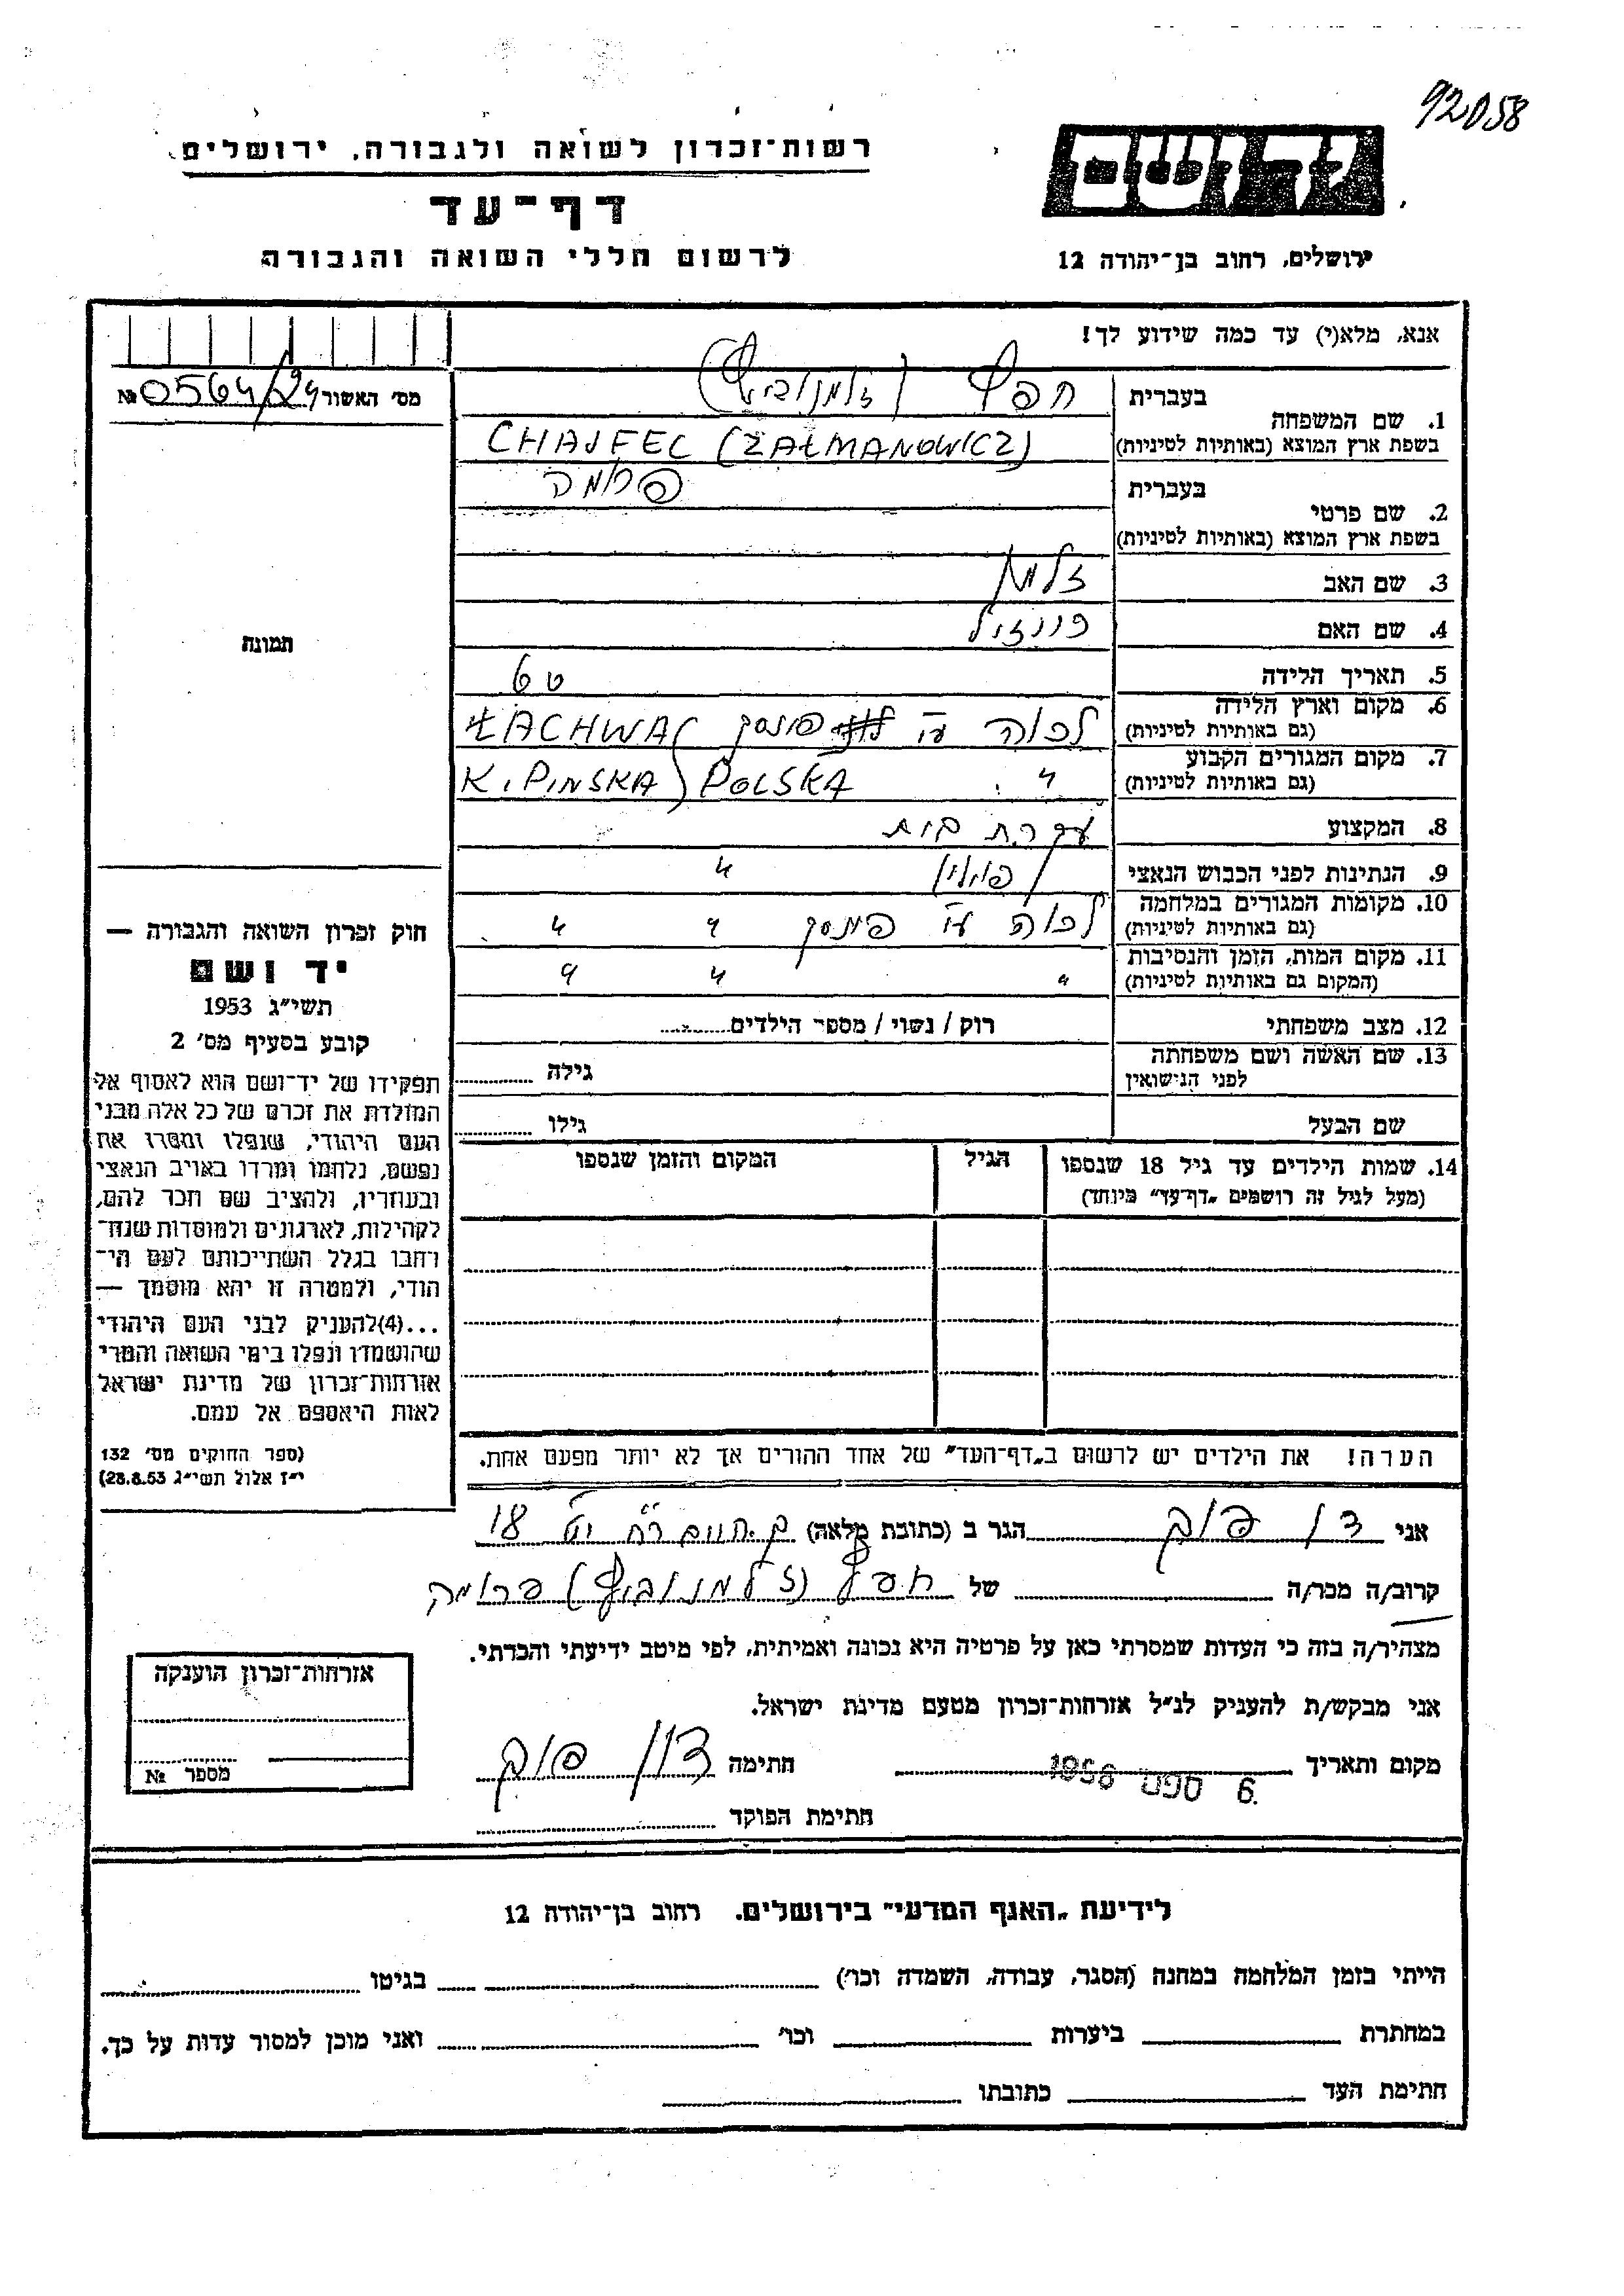 92058
רשות־זכרון לשואה ולגבורה, ירושלים
דף־עד
לרשום חללי השואה והגבורה
ידושם
ירושלים, רחוב בן־יהודה 12
אנא, מלא(י) עד כמה שידוע לך!
מס' האשור № 0564/24
1. שם המשפחה
בעברית
בשפת ארץ המוצא (באותיות לטיניות) CHAJFEC (ZAŁMANOWICZ)
2. שם פרטי
בעברית פרומה
בשפת ארץ המוצא (באותיות לטיניות)
3. שם האב זלמן
4. שם האם
5. תאריך הלידה
6. מקום וארץ הלידה
(גם באותיות לטיניות) לכוה ע"י פינסק ŁACHWA
7. מקום המגורים הקבוע
(גם באותיות לטיניות) " K. PINSKA POLSKA
8. המקצוע עקרת בית
9. הנתינות לפני הכבוש הנאצי פולין "
10. מקומות המגורים במלחמה
(גם באותיות לטיניות) לכוה ע"י פינסק " "
11. מקום המות, הזמן והנסיבות
(המקום גם באותיות לטיניות) " " "
12. מצב משפחתי רוק / נשוי / מספר הילדים
13. שם האשה ושם משפחתה
לפני הנישואין גילה
שם הבעל גילו
14. שמות הילדים עד גיל 18 שנספו
(מעל לגיל זה רושמים "דף־עד" מיוחד)
הגיל
המקום והזמן שנספו
תמונה
חוק זכרון השואה והגבורה —
יד ושם
תשי"ג 1953
קובע בסעיף מס' 2
תפקידו של יד־ושם הוא לאסוף אל
המולדת את זכרם של כל אלה מבני
העם היהודי, שנפלו ומסרו את
נפשם, נלחמו ומרדו באויב הנאצי
ובעוזריו, ולהציב שם וזכר להם,
לקהילות, לארגונים ולמוסדות שנח־
רבו בגלל השתייכותם לעם הי־
הודי, ולמטרה זו יהא מוסמך —
...(4)להעניק לבני העם היהודי
שהושמדו ונפלו בימי השואה והמרי
אזרחות־זכרון של מדינת ישראל
לאות היאספם אל עמם.
(ספר החוקים מס' 132
י"ז אלול תשי"ג 28.8.53)
הערה! את הילדים יש לרשום ב"דף־העד" של אחד ההורים אך לא יותר מפעם אחת.
אני הגר ב (כתובת מלאה) 18
קרוב/ה מכר/ה של פרומה
מצהיר/ה בזה כי העדות שמסרתי כאן על פרטיה היא נכונה ואמיתית, לפי מיטב ידיעתי והכרתי.
אני מבקש/ת להעניק לנ"ל אזרחות־זכרון מטעם מדינת ישראל.
מקום ותאריך 6. ספט 1956 חתימה
חתימת הפוקד
אזרחות־זכרון הוענקה
מספר №
לידיעת "האגף המדעי" בירושלים. רחוב בן־יהודה 12
הייתי בזמן המלחמה במחנה (הסגר, עבודה, השמדה וכו') בגיטו
במחתרת ביערות וכו' ואני מוכן למסור עדות על כך.
חתימת העד כתובתו